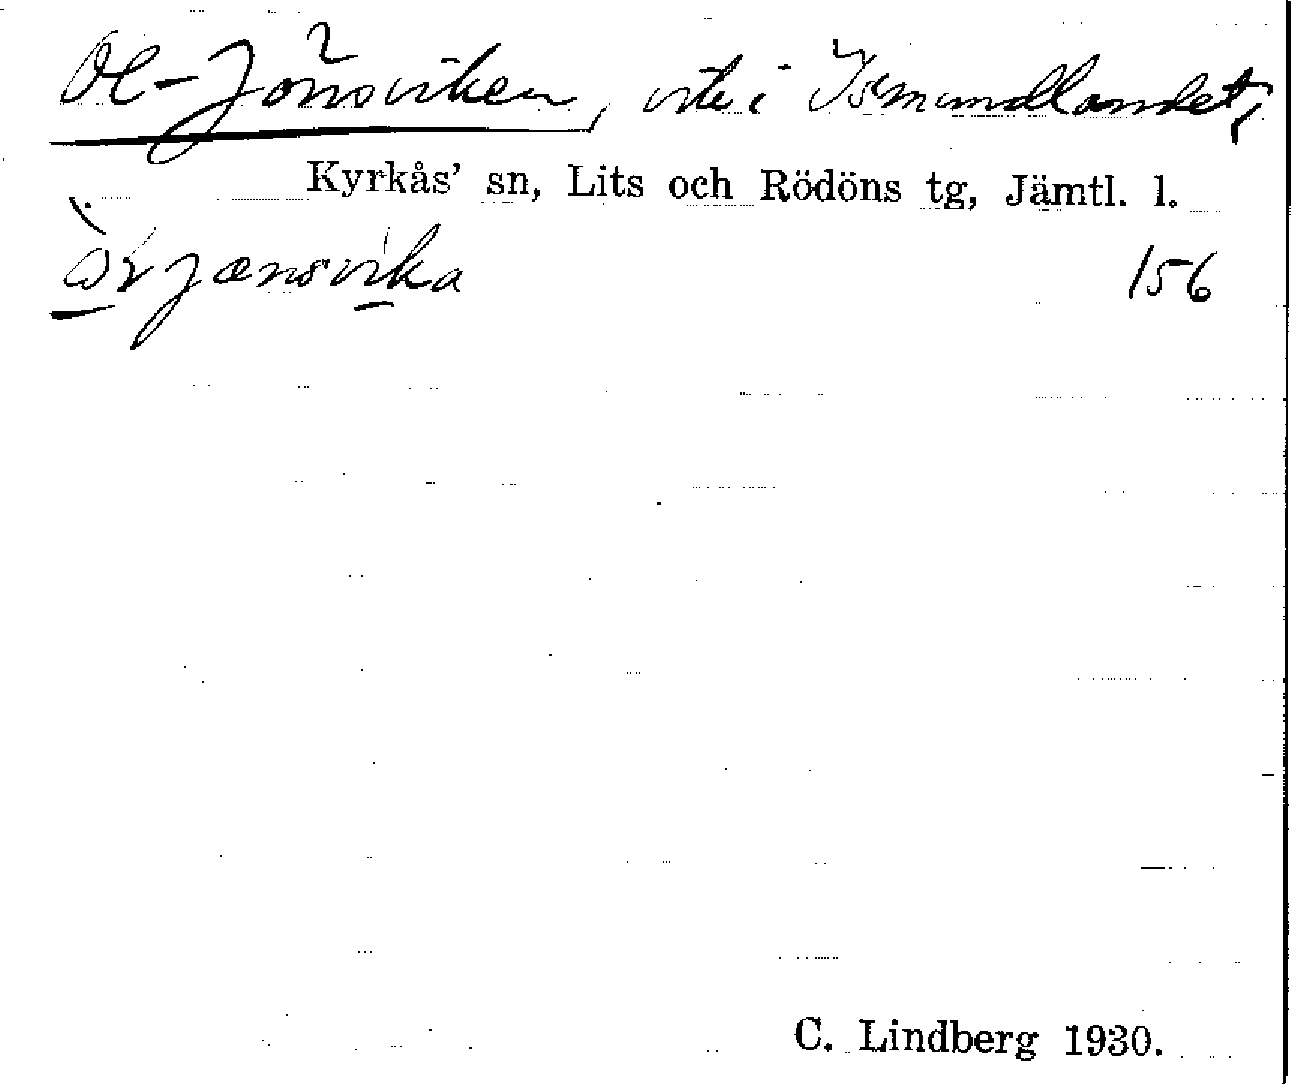 Ol-Jönsviken, vik i Ismundlandet,
Kyrkås' sn, Lits och Rödöns tg, Jämtl. l.
156
C. Lindberg 1930.